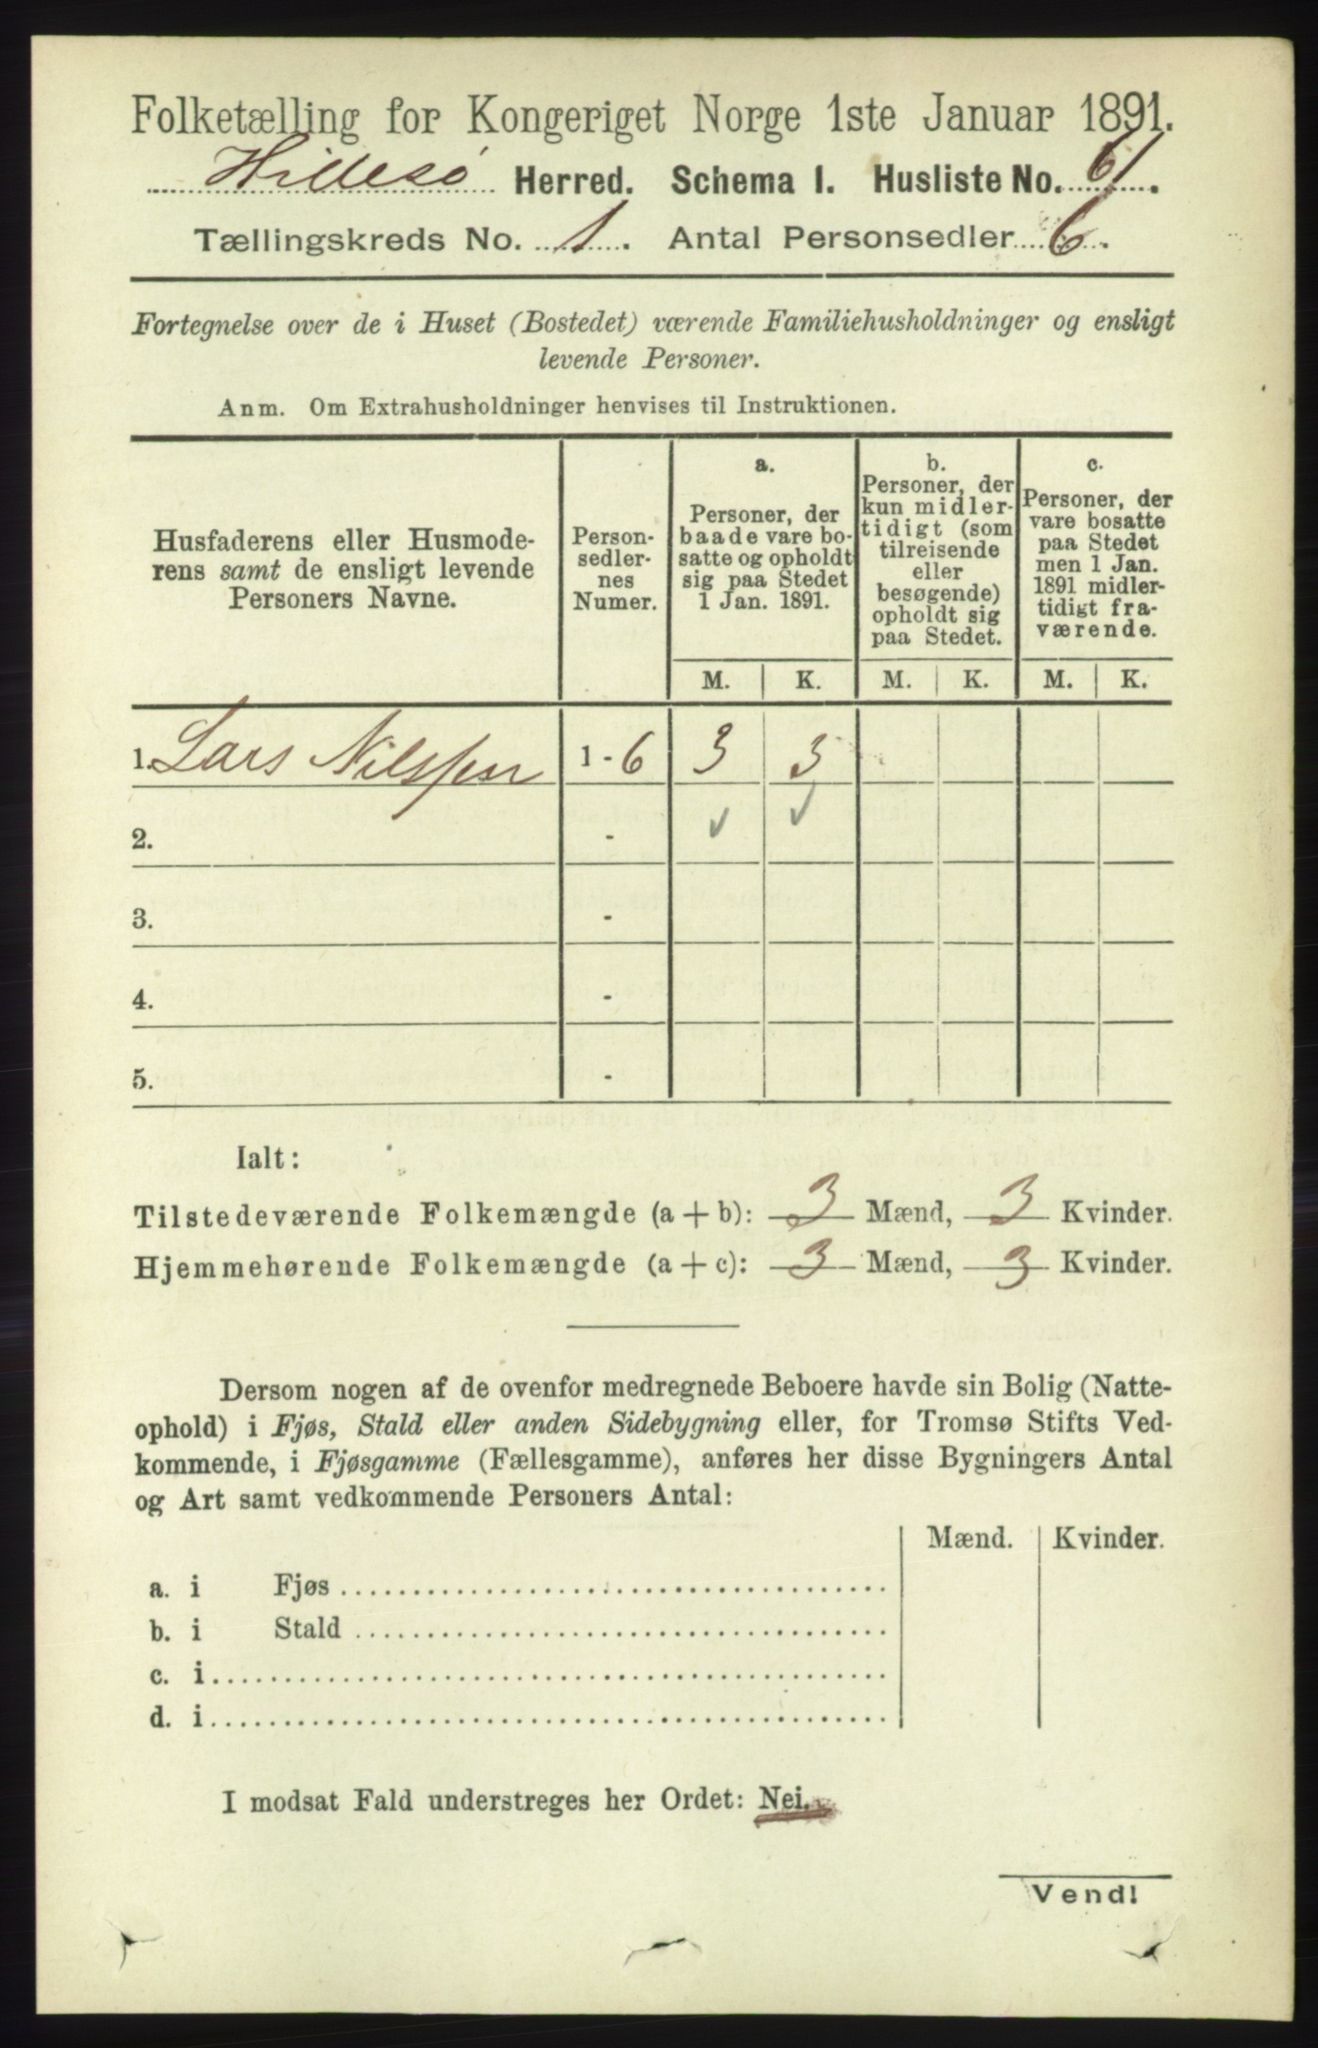 Folketælling for Kongeriget Norge 1ste Januar 1891.
Hillesø Herred. Schema I. Husliste No. 61.
Tællingskreds No. 1. Antal Personsedler 6.
Fortegnelse over de i Huset (Bostedet) værende Familiehusholdninger og ensligt
levende Personer.
Anm. Om Extrahusholdninger henvises til Instruktionen.
Husfaderens eller Husmode-
rens samt de ensligt levende
Personers Navne.
Person-
sedler-
nes
Numer.
a.
Personer, der
baade vare bo-
satte og opholdt
sig paa Stedet
1 Jan. 1891.
b.
Personer, der
kun midler-
tidigt (som
tilreisende
eller
besøgende)
opholdt sig
paa Stedet.
c.
Personer, der
vare bosatte
paa Stedet
men 1 Jan.
1891 midler-
tidigt fra-
værende.
M. K. M. K. M. K.
1. Lars Nilssen 1 - 6 3 3
2. -
3. -
4. -
5. -
Ialt:
Tilstedeværende Folkemængde (a + b): 3 Mænd, 3 Kvinder.
Hjemmehørende Folkemængde (a + c): 3 Mænd, 3 Kvinder.
Dersom nogen af de ovenfor medregnede Beboere havde sin Bolig (Natte-
ophold) i Fjøs, Stald eller anden Sidebygning eller, for Tromsø Stifts Ved-
kommende, i Fjøsgamme (Fællesgamme), anføres her disse Bygningers Antal
og Art samt vedkommende Personers Antal:
Mænd. Kvinder.
a. i Fjøs
b. i Stald
c. i
d. i
I modsat Fald understreges her Ordet: Nei.
Vend!